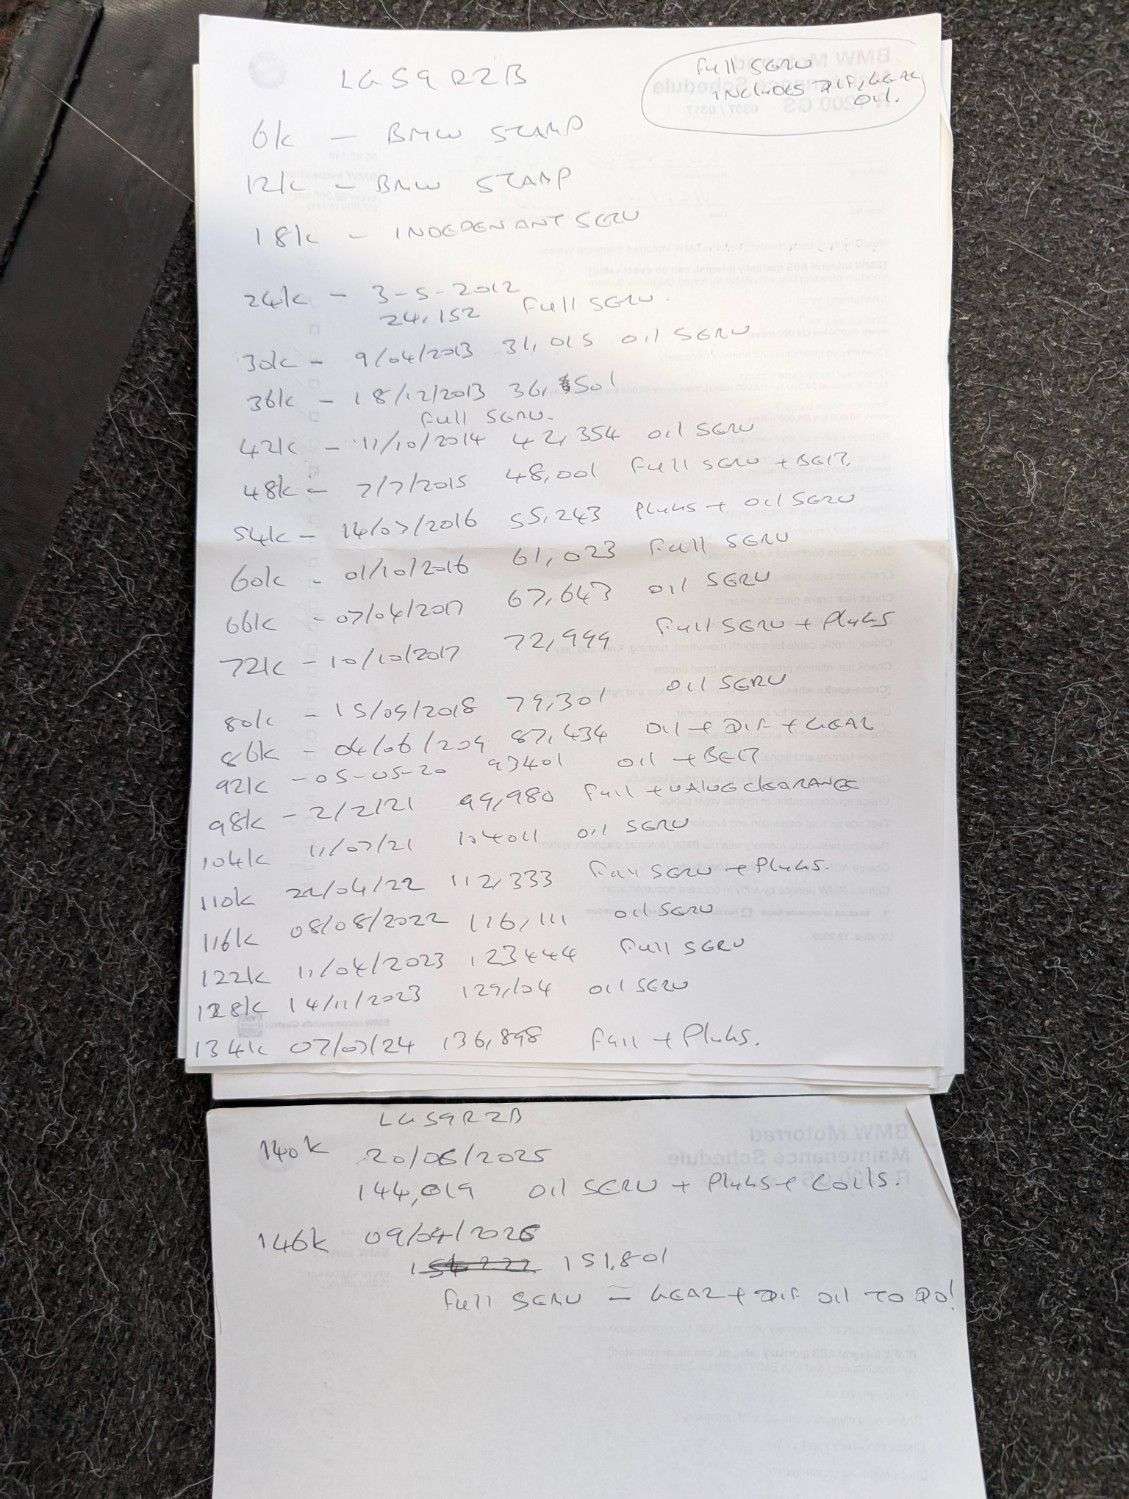 LG59RZB
Full SERV
INCLUDES DIF, GEAR
OIL.
6k - BMW STAMP
12k - BMW STAMP
18k - INDEPENANT SERV
24k - 3-5-2012
24,152 Full SERV.
30k - 9/04/2013 31,015 OIL SERV
36k - 18/12/2013 36,501
Full SERV.
42k - 11/10/2014 42,354 OIL SERV
48k - 7/7/2015 48,001 Full SERV + BELT.
54k - 14/07/2016 55,243 Plugs + OIL SERV
60k - 01/10/2016 61,023 Full SERV
66k - 07/04/2017 67,643 OIL SERV
72k - 10/10/2017 72,999 Full SERV + Plugs
80k - 15/09/2018 79,301 OIL SERV
86k - 04/06/209 87,434 OIL + DIF + GEAR
92k - 05-05-20 93401 OIL + BELT
98k - 2/2/21 99,980 Full + VALVE CLEARANCE
104k 11/07/21 104011 OIL SERV
110k 22/04/22 112,333 Full SERV + Plugs.
116k 08/08/2022 116,111 OIL SERV
122k 11/04/2023 123444 Full SERV
128k 14/11/2023 129,104 OIL SERV
134k 07/07/24 136,898 Full + Plugs.
LG59RZB
140k 20/06/2025
144,019 OIL SERV + Plugs + COILS.
146k 09/04/2026
151,801
Full SERV - GEAR + DIF OIL TO DO!